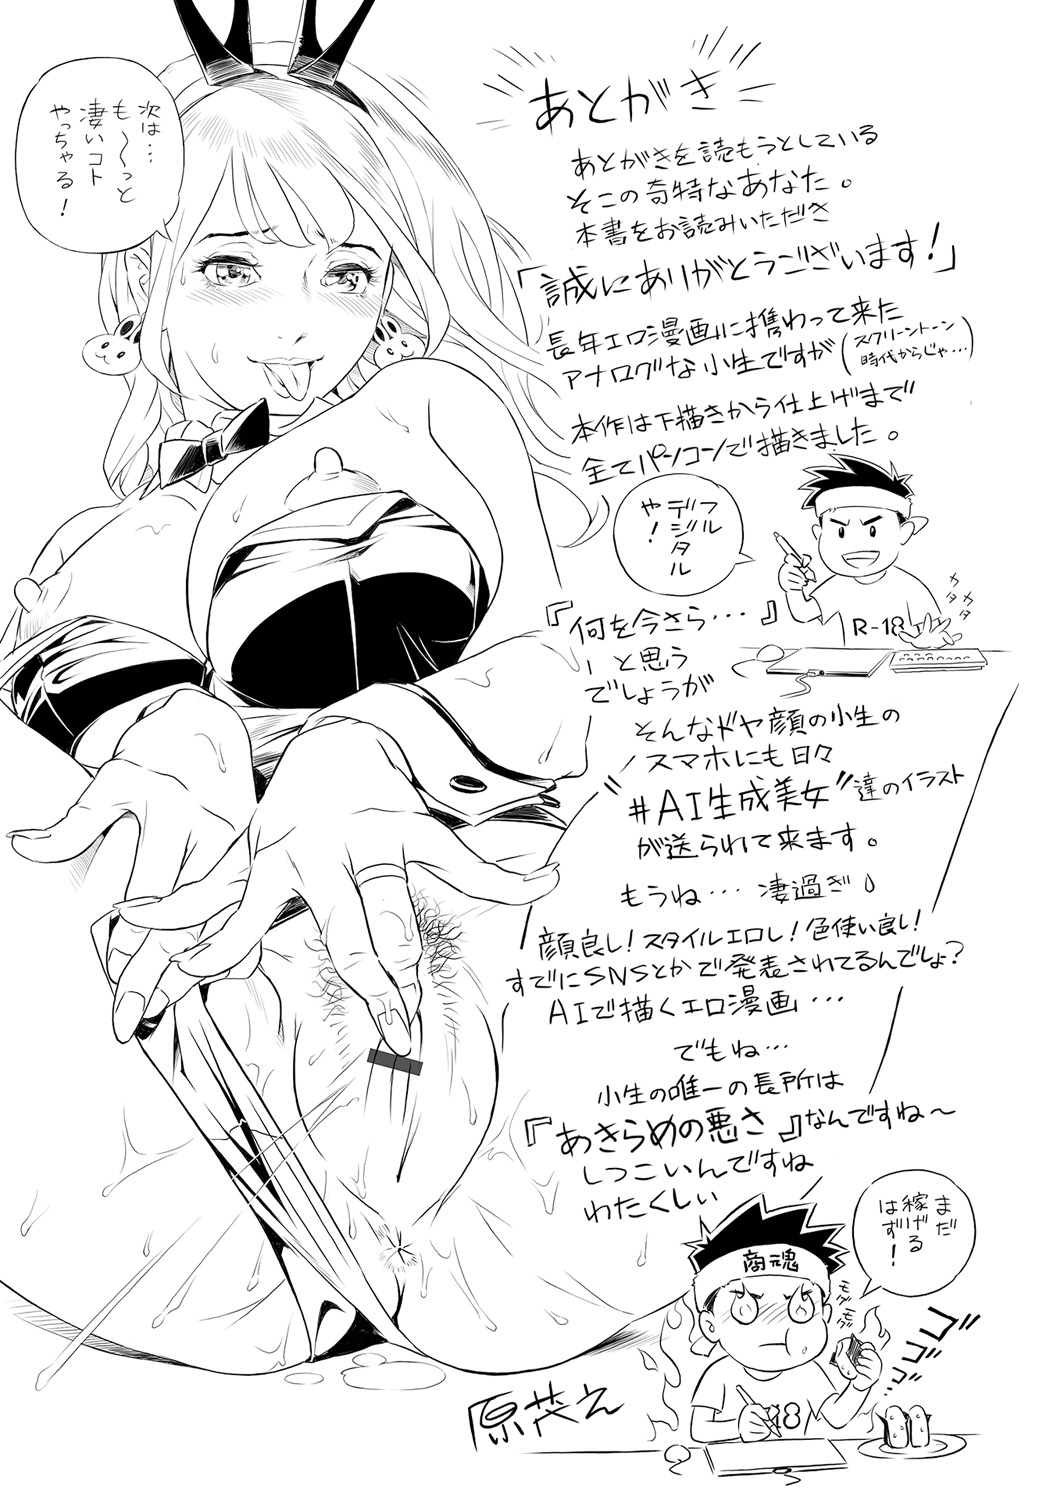 次は…
も〜っと
凄いコト
やっちゃる！
あとがき
あとがきを読もうとしている
そこの奇特なあなた。
本書をお読みいただき
「誠にありがとうございます！」
長年エロ漫画に携わって来た
アナログな小生ですが(スクリーントーン
時代からじゃ…)
本作は下描きから仕上げまで
全てパソコンで描きました。
フル
デジタル
や！
カタ
カタ
R-18
『何を今さら…』
ーと思う
でしょうが
そんなドヤ顔の小生の
スマホにも日々
"#AI生成美女"達のイラスト
が送られて来ます。
もうね…凄過ぎ
顔良し！スタイルエロし！色使い良し！
すでにSNSとかで発表されてるんでしょ？
AIで描くエロ漫画…
でもね…
小生の唯一の長所は
『あきらめの悪さ』なんですね〜
しつこいんですね
わたくしぃ
まだ
稼げる
はず！
商魂
モグモグ
ゴゴゴゴ…
18
原茂え